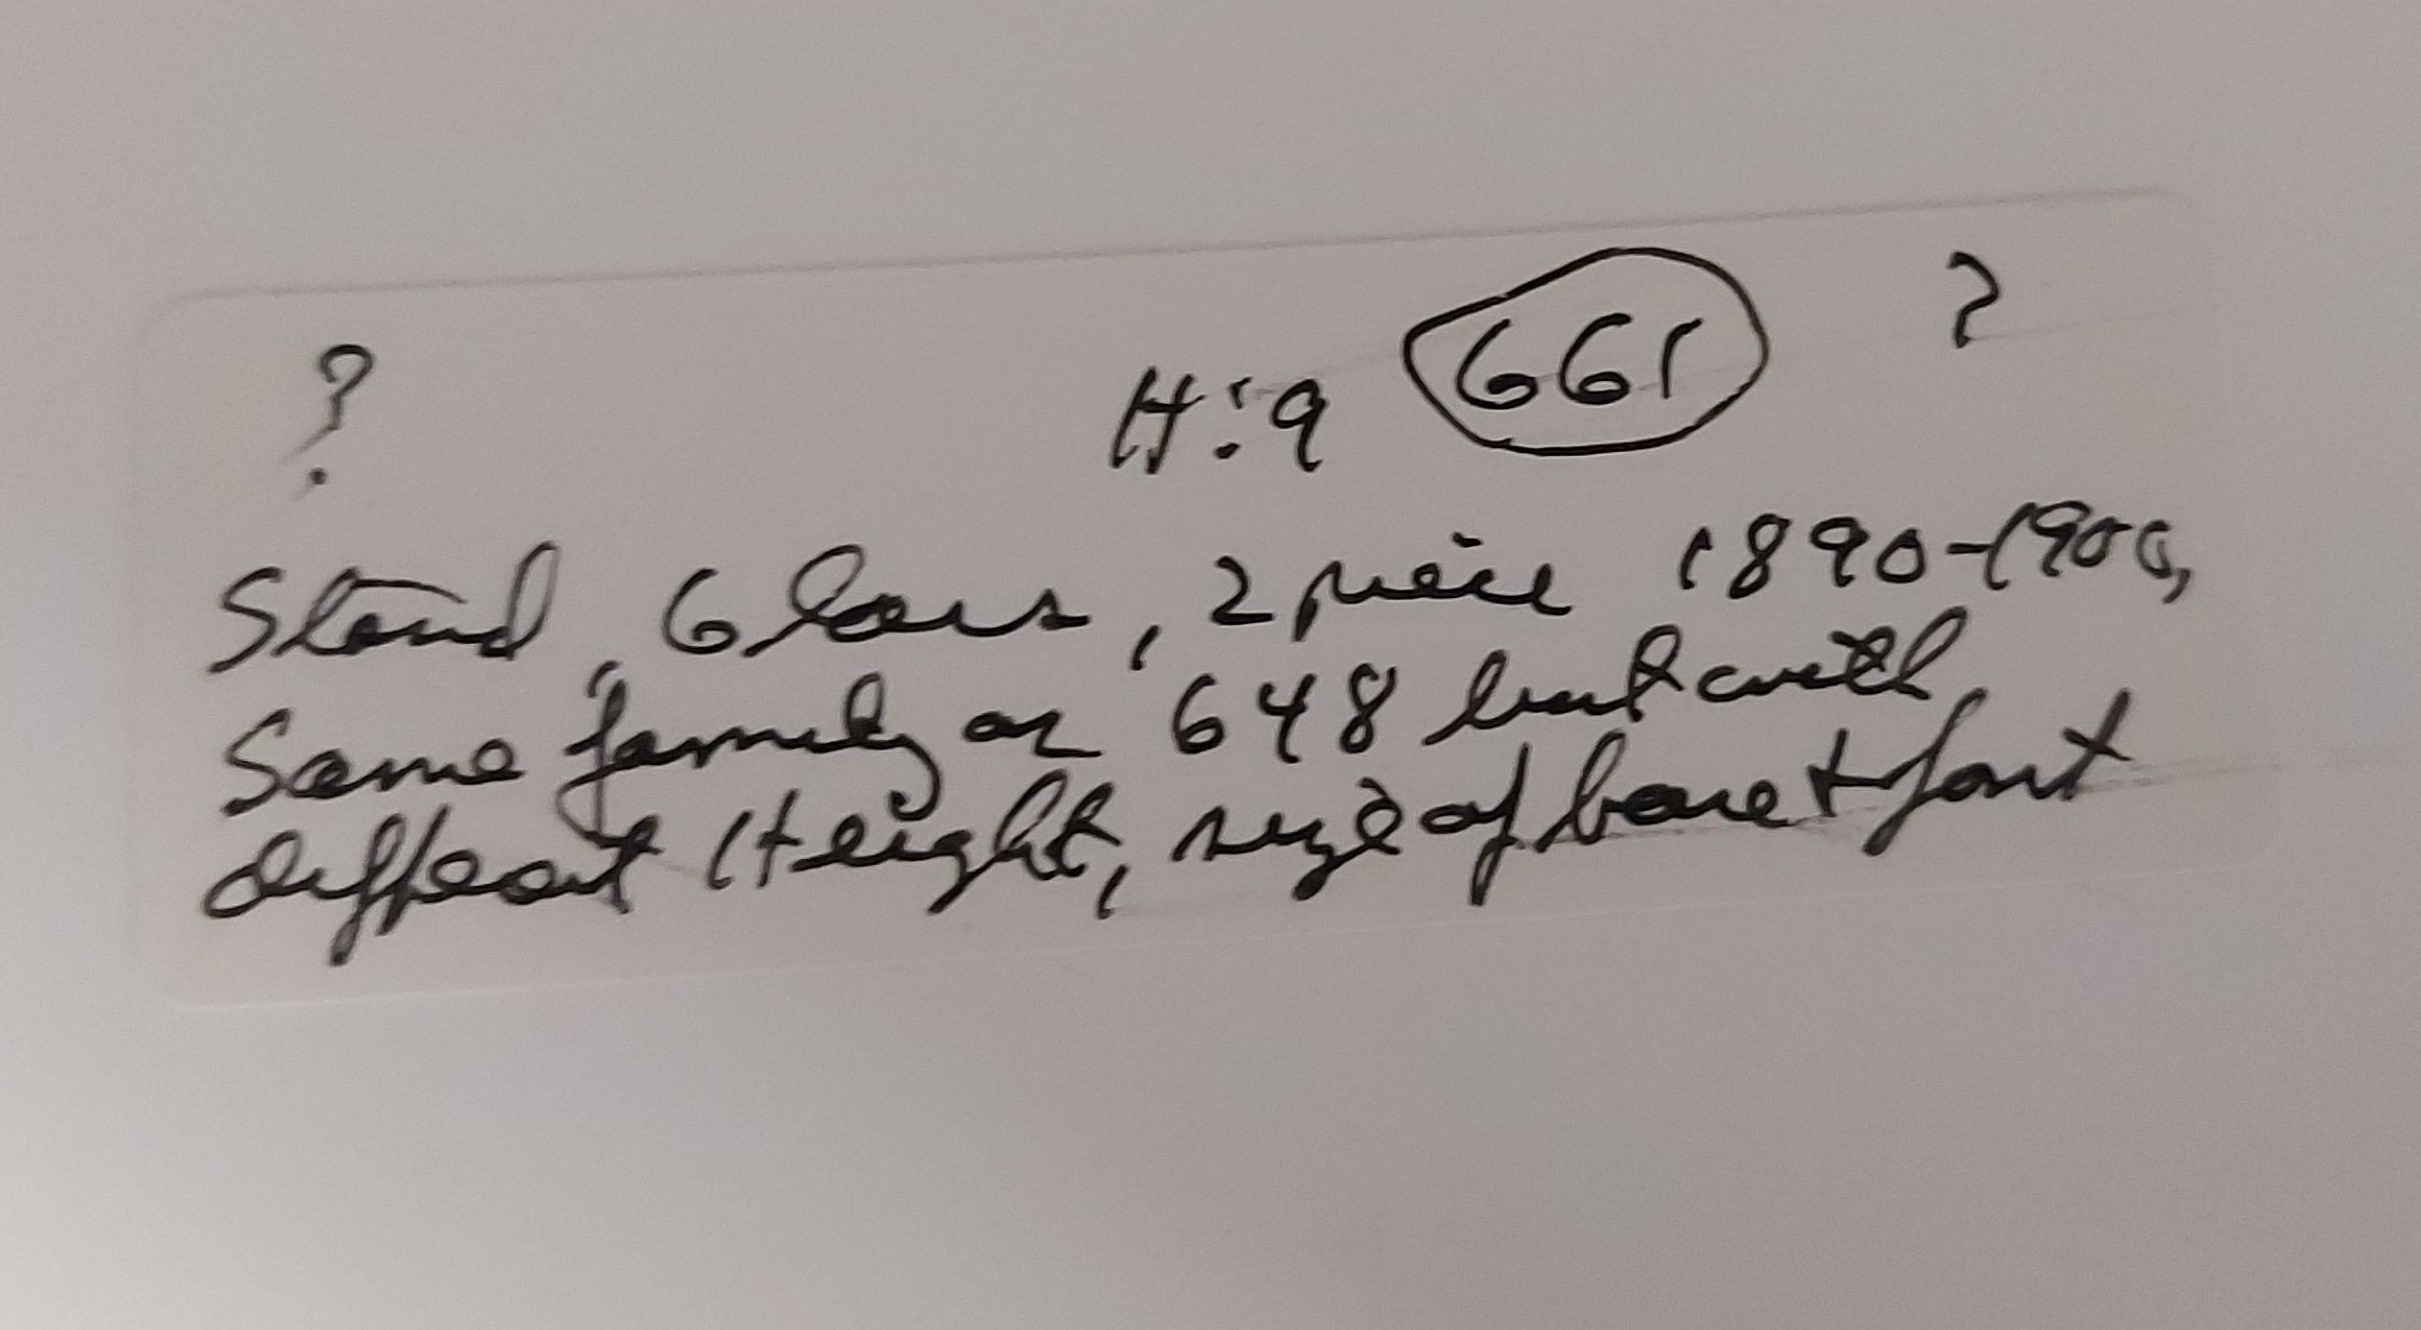 ? H: 9 661 ?
Stand, Glass, 2 piece 1890-1900,
Same family as 648 but with
different Height, size of base + font